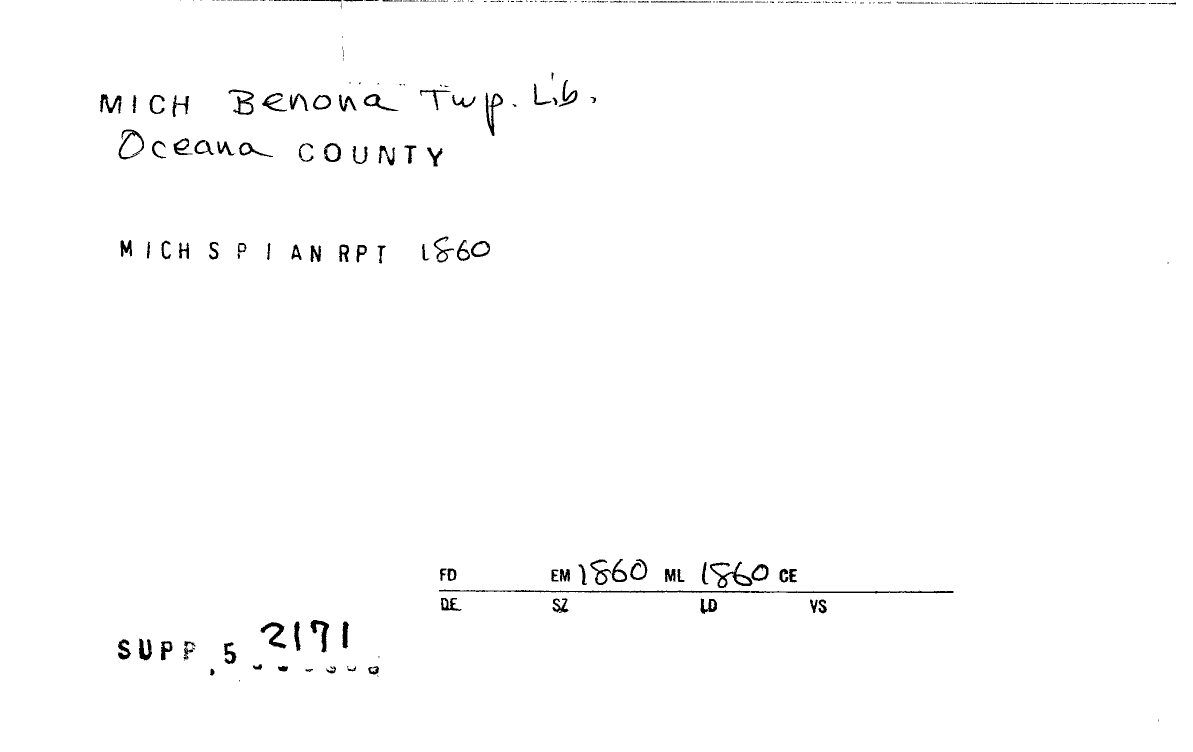 MICH Benona Twp. Lib.
Oceana COUNTY
MICH S P I AN RPT 1860
FD EM 1860 ML 1860 CE
DE SZ LD VS
SUPP. 5 2171